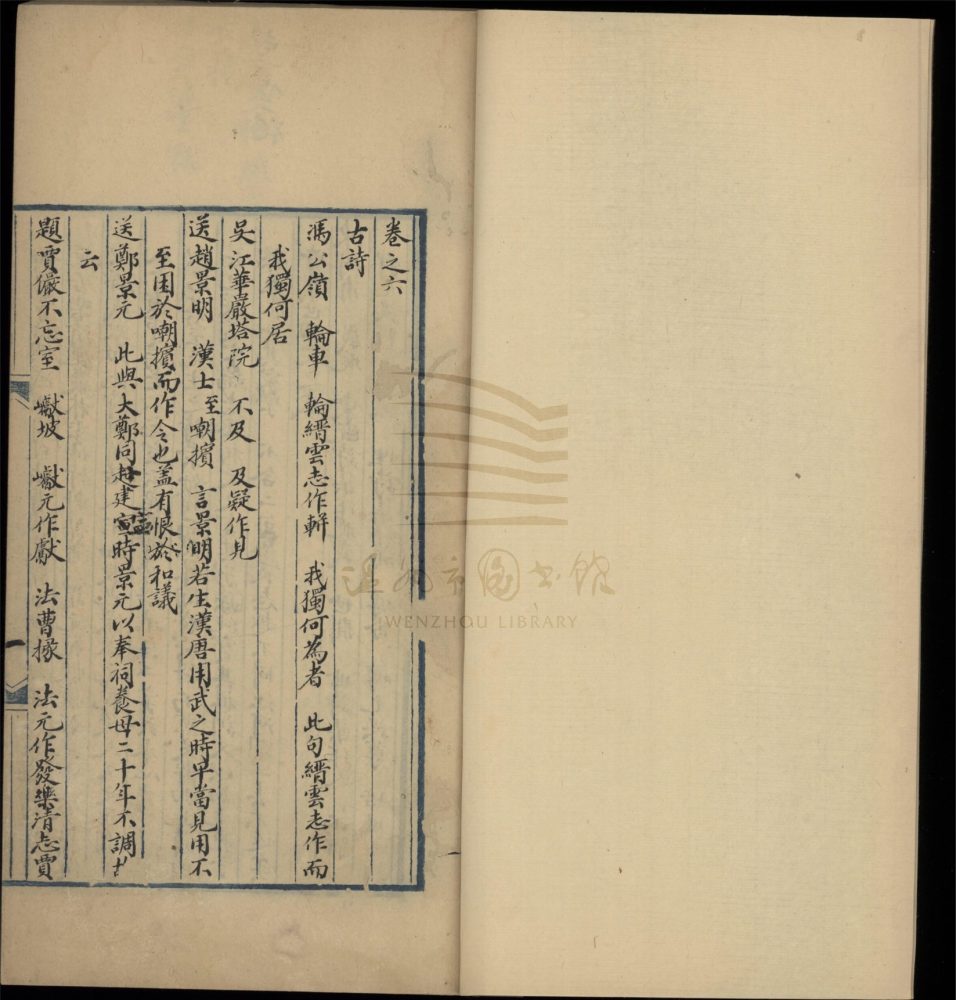 卷之六
古詩
馮公嶺　輪車　輪縉雲志作軿　我獨何為者　此句縉雲志作而
我獨何居
吳江華嚴塔院　不及　及疑作見
送趙景明　漢士至嘲擯　言景明若生漢唐用武之時早當見用不
至困於嘲擯而作令也蓋有恨於和議
送鄭景元　此與大鄭同赴建寧時景元以奉祠養母二十年不調
云
題賈儼不忘室　巘坡　巘元作獻　法曹掾　法元作發樂清志賈
温州市图书馆
WENZHOU LIBRARY